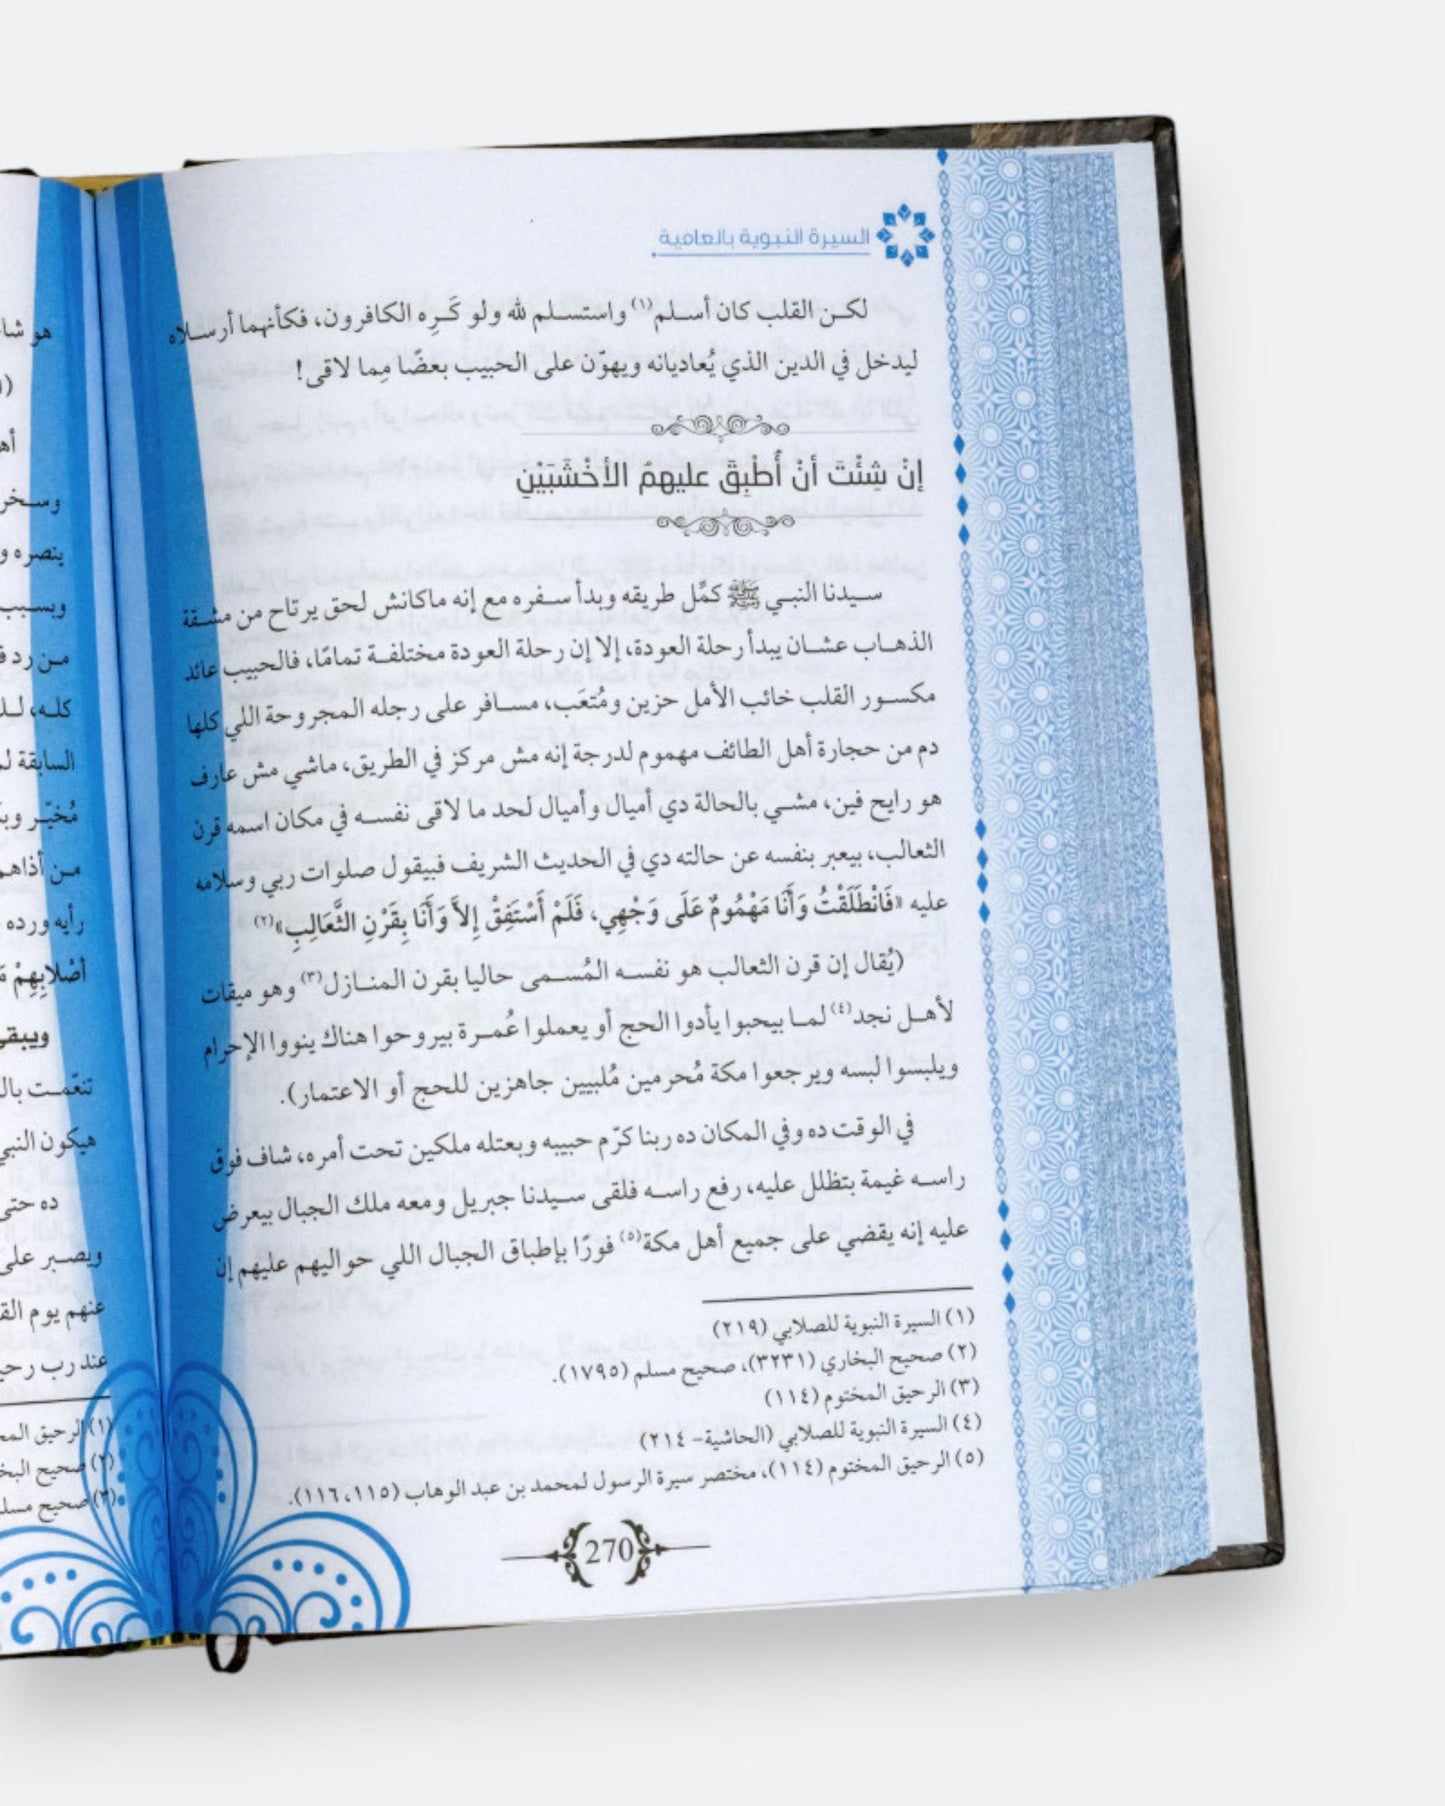 السيرة النبوية بالعامية
لكن القلب كان أسلم(١) واستسلم لله ولو كَرِه الكافرون، فكأنهما أرسلاه
ليدخل في الدين الذي يُعاديانه ويهوّن على الحبيب بعضًا مِما لاقى!
إنْ شِئْتَ أنْ أُطْبِقَ عليهمُ الأخْشَبَيْنِ
سيدنا النبي ﷺ كمِّل طريقه وبدأ سفره مع إنه ماكانش لحق يرتاح من مشقة
الذهاب عشان يبدأ رحلة العودة، إلا إن رحلة العودة مختلفة تمامًا، فالحبيب عائد
مكسور القلب خائب الأمل حزين ومُتعَب، مسافر على رجله المجروحة اللي كلها
دم من حجارة أهل الطائف مهموم لدرجة إنه مش مركز في الطريق، ماشي مش عارف
هو رايح فين، مشي بالحالة دي أميال وأميال لحد ما لاقى نفسه في مكان اسمه قرن
الثعالب، بيعبر بنفسه عن حالته دي في الحديث الشريف فبيقول صلوات ربي وسلامه
عليه «فَانْطَلَقْتُ وَأَنَا مَهْمُومٌ عَلَى وَجْهِي، فَلَمْ أَسْتَفِقْ إِلاَّ وَأَنَا بِقَرْنِ الثَّعَالِبِ»(٢)
(يُقال إن قرن الثعالب هو نفسه المُسمى حاليا بقرن المنازل(٣) وهو ميقات
لأهل نجد(٤) لما بيحبوا يأدوا الحج أو يعملوا عُمرة بيروحوا هناك ينووا الإحرام
ويلبسوا لبسه ويرجعوا مكة مُحرمين مُلبيين جاهزين للحج أو الاعتمار).
في الوقت ده وفي المكان ده ربنا كرّم حبيبه وبعتله ملكين تحت أمره، شاف فوق
راسه غيمة بتظلل عليه، رفع راسه فلقى سيدنا جبريل ومعه ملك الجبال بيعرض
عليه إنه يقضي على جميع أهل مكة(٥) فورًا بإطباق الجبال اللي حواليهم عليهم إن
(١) السيرة النبوية للصلابي (٢١٩)
(٢) صحيح البخاري (٣٢٣١)، صحيح مسلم (١٧٩٥).
(٣) الرحيق المختوم (١١٤)
(٤) السيرة النبوية للصلابي (الحاشية- ٢١٤)
(٥) الرحيق المختوم (١١٤)، مختصر سيرة الرسول لمحمد بن عبد الوهاب (١١٥، ١١٦).
270
هو
وسخر
ينصره
وبسبب
من رد
كله،
السابقة
مُخيّر
من أذاهم
رأيه ورده
أصْلابِهِمْ
ويبقى
تنعّمت
هيكون النبي
ده حتى
ويصبر على
عنهم يوم
عند رب
(١) الرحيق
(٢) صحيح
(٣) صحيح